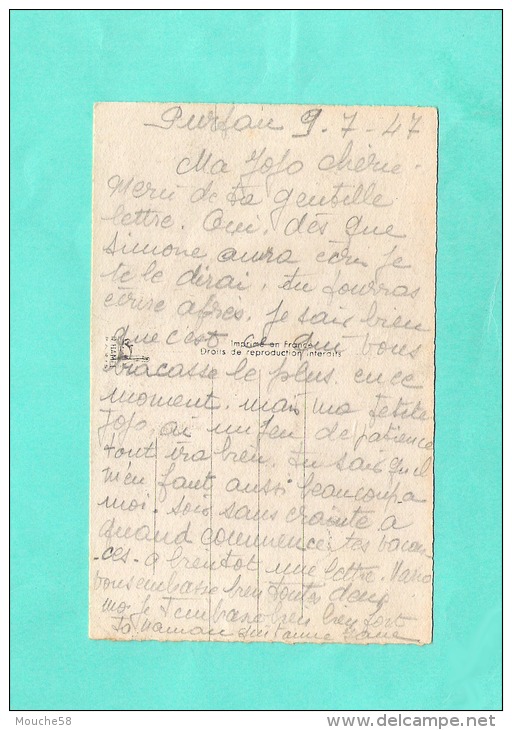 9-7-47
Ma Jojo chérie.
Merci de ta gentille
lettre. Oui, dès que
Simone aura écri je
te le dirai. tu pourras
écrire après. Je sais bien
que c'est ce qui vous
Imprimé en France
Droits de reproduction interdits
tracasse le plus en ce
moment. mais ma petite
Jojo. ai un peu de patience
tout ira bien. Tu sais qu'il
m'en faut aussi beaucoup a
moi. Sois sans crainte a
quand commence tes vacan
-ces. a bientot une lettre.
vous embrasse bien toutes deux
moi je t'embrasse bien bien fort
ta Maman
Mouche58
www.delcampe.net